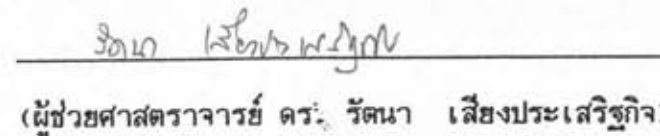 รัตนา เสียงประเสริฐกิจ
(ผู้ช่วยศาสตราจารย์ ดร. รัตนา เสียงประเสริฐกิจ)